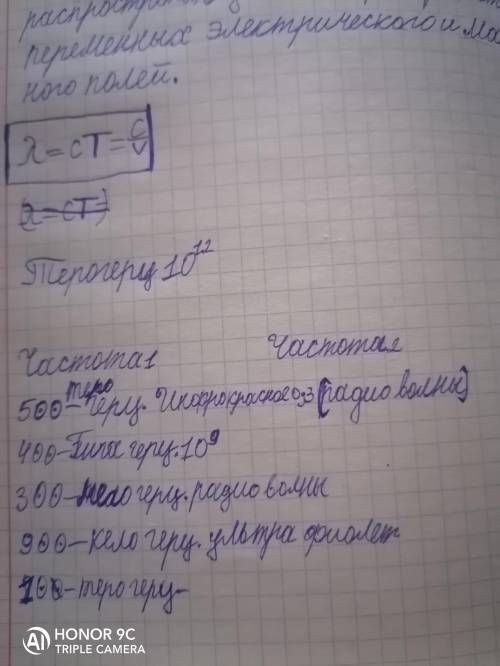 переменных электрического и ма
ного полей.
λ = cT = c/ν
(λ = cT =)
Терогерц 10¹²
Частота1 Частота2
500-теро герц. Инфрокрасное 0,3 (радио волны)
400-Гига герц. 10⁹
300- герц. радио волны
900-кело герц. ультра фиолет
100-терогерц-
HONOR 9C
TRIPLE CAMERA